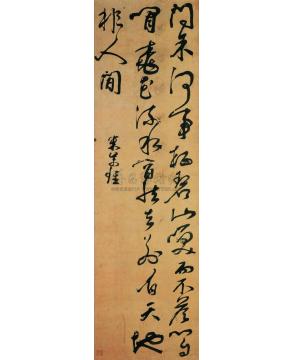 問余何事栖碧山笑而不答心自
閒桃花流水窅然去別有天地
非人間